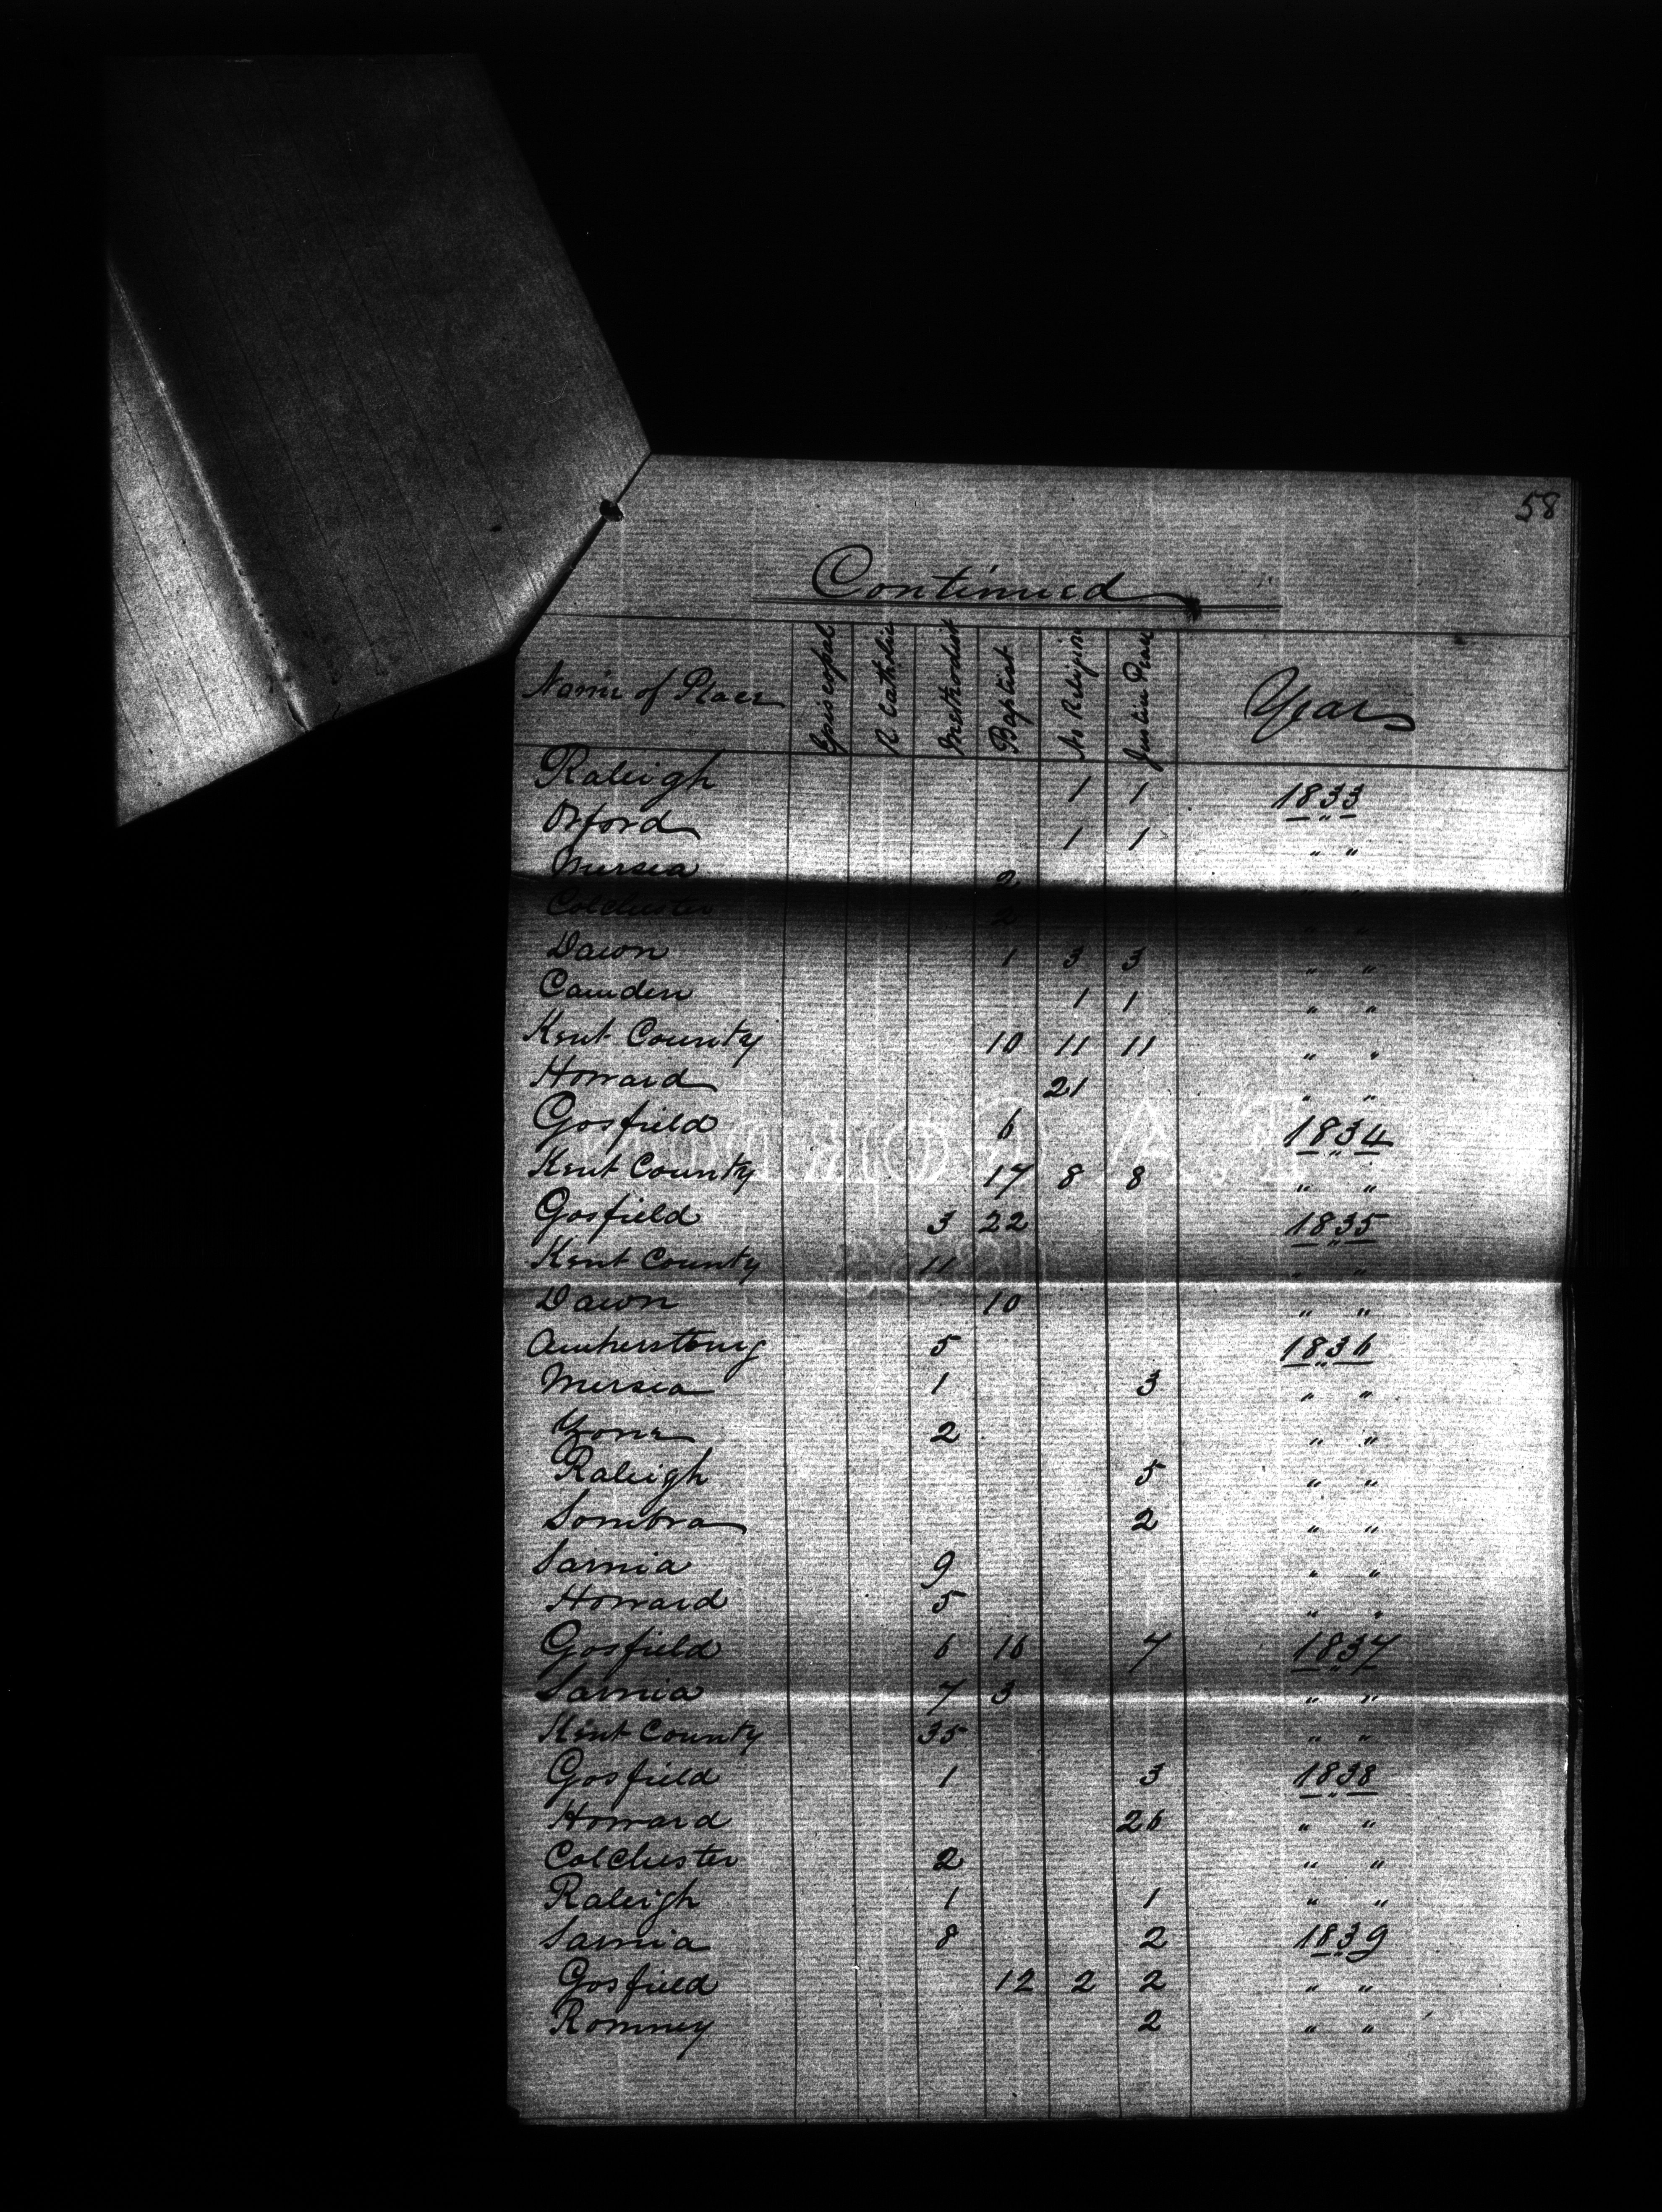 58
Continued
Name of Place Episcopal R Catholic Methodist Baptist No Religion Justice Peace Years
Raleigh 1 1 1833
Orford 1 1 " "
Mersea 2 " "
Colchester 2 " "
Dawn 1 3 3 " "
Camden 1 1 " "
Kent County 10 11 11 " "
Howard 21 " "
Gosfield 6 1834
Kent County 17 8 8 " "
Gosfield 3 22 1835
Kent County 11 " "
Dawn 10 " "
Amherstburg 5 1836
Mersea 1 3 " "
Zone 2 " "
Raleigh 5 " "
Sombra 2 " "
Sarnia 9 " "
Howard 5 " "
Gosfield 6 16 7 1837
Sarnia 7 3 " "
Kent County 35 " "
Gosfield 1 3 1838
Howard 26 " "
Colchester 2 " "
Raleigh 1 1 " "
Sarnia 8 2 1839
Gosfield 12 2 2 " "
Romney 2 " "